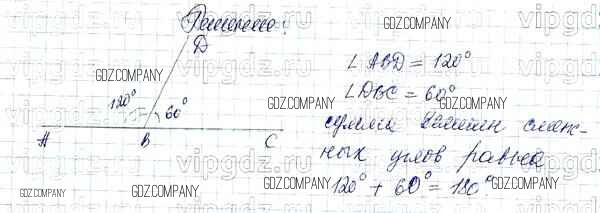 Решение:
D
120° 60°
A B C
∠ABD = 120°
∠DBC = 60°
сумма смеж-
ных углов равна
120° + 60° = 180°
GDZ.COMPANY
GDZ.COMPANY
GDZ.COMPANY
GDZ.COMPANY
GDZ.COMPANY
GDZ.COMPANY
GDZ.COMPANY
GDZ.COMPANY